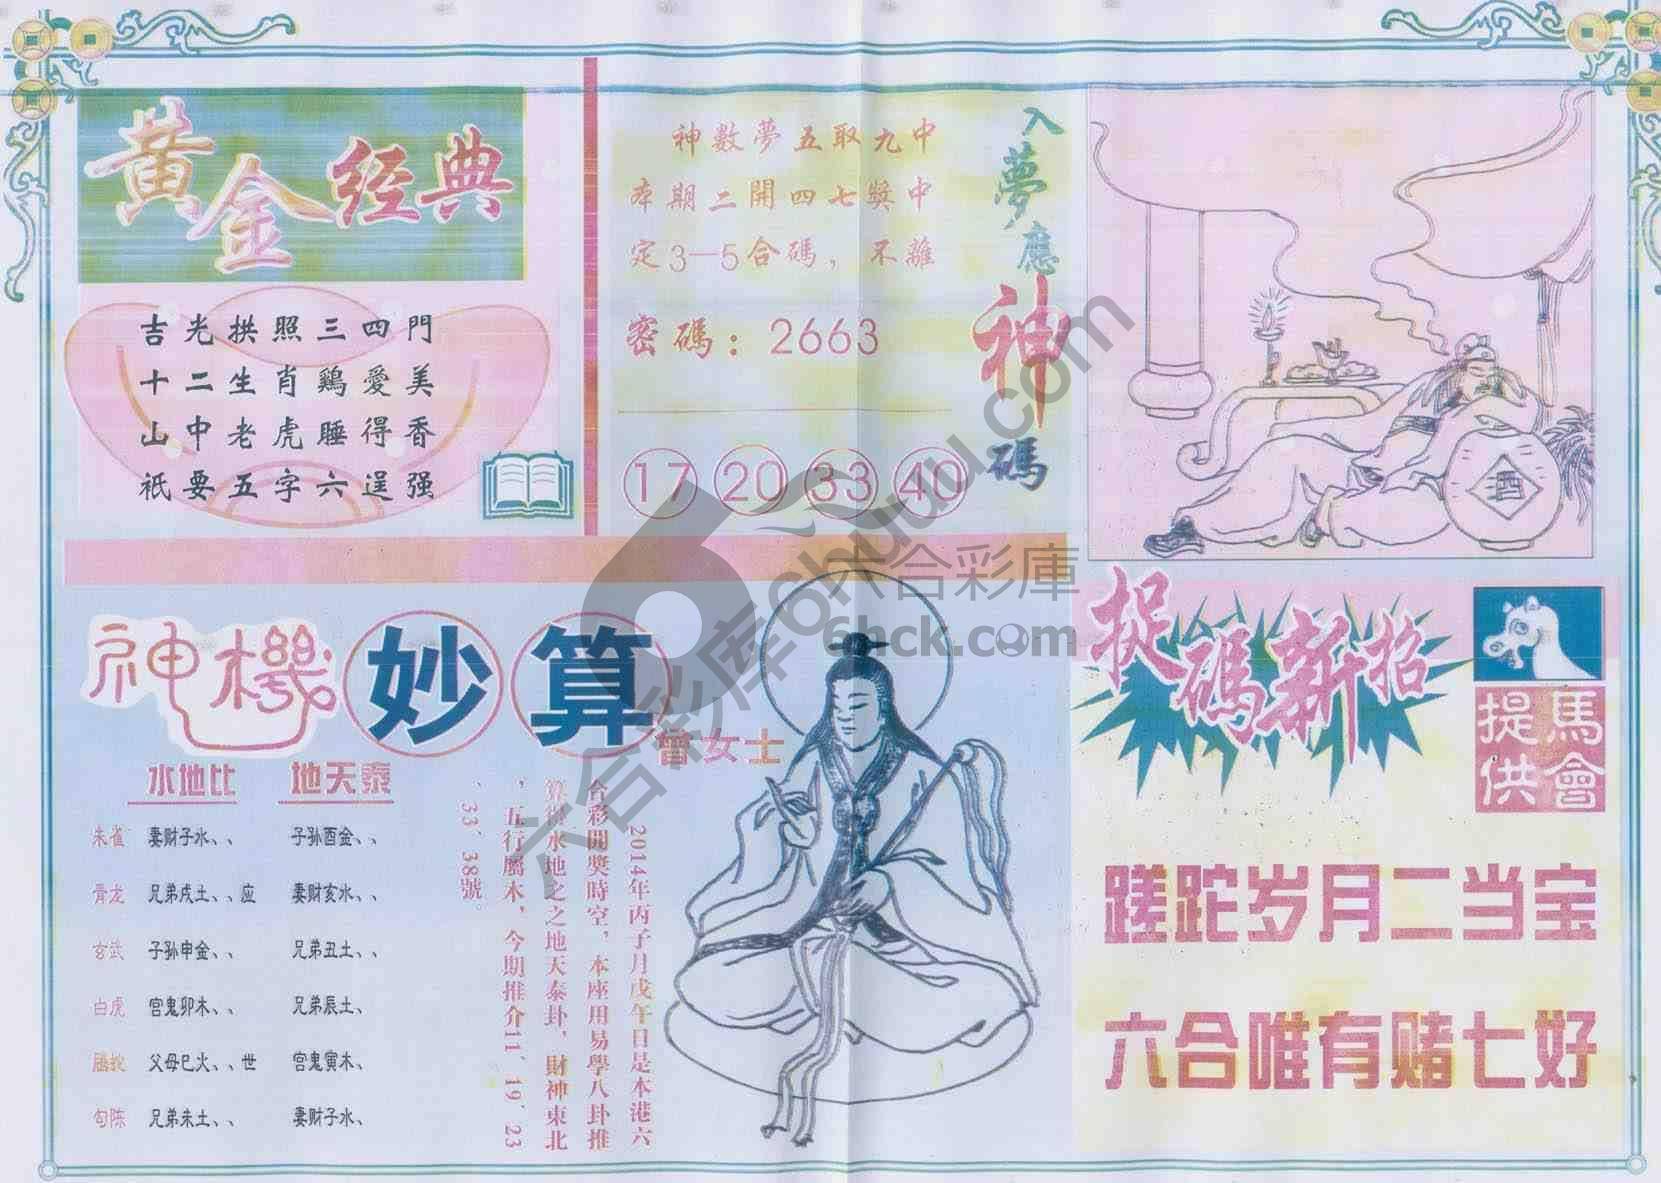 黄金经典
吉光拱照三四門
十二生肖鷄愛美
山中老虎睡得香
祇要五字六逞强
神數夢五取九中
本期二開四七獎中
定3—5合碼，不離
密碼：2663
17 20 33 40
入夢應神碼
酒
神機妙算
曾女士
水地比 地天泰
朱雀 妻财子水、、 子孙酉金、、
青龙 兄弟戌土、、应 妻财亥水、、
玄武 子孙申金、、 兄弟丑土、、
白虎 官鬼卯木、、 兄弟辰土、
螣蛇 父母巳火、、世 官鬼寅木、
勾陈 兄弟未土、、 妻财子水、
2014年丙子月戊午日是本港六
合彩開奬時空，本座用易學八卦推
算得水地之之地天泰卦，財神東北
，五行屬木，今期推介11、19、23
、33、38號。
捉碼新招
馬會提供
蹉跎岁月二当宝
六合唯有赌七好
六合彩库6huuu.com
六合彩庫
6hck.com